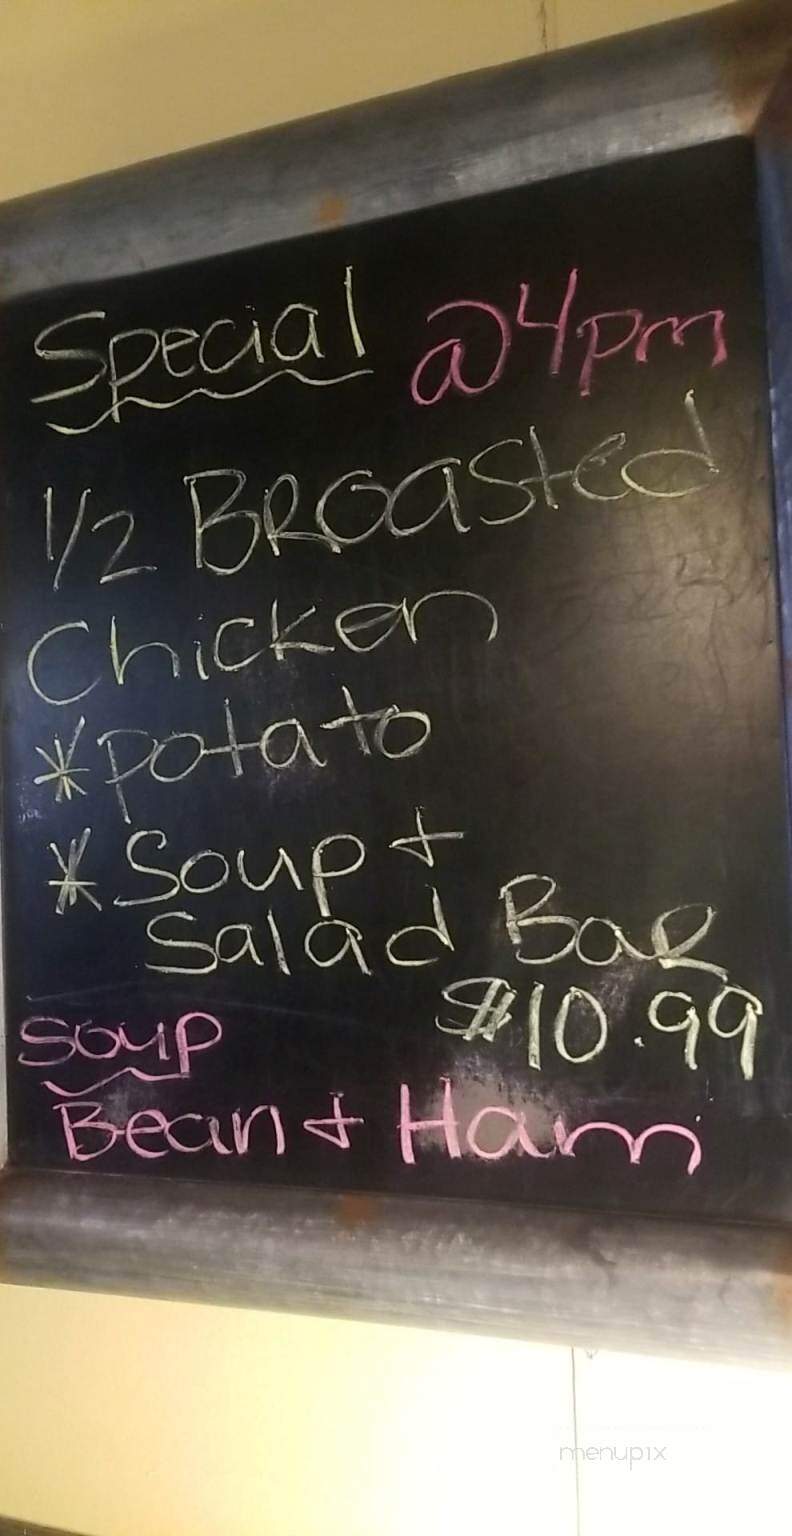 Special @4pm
1/2 BRoasted
Chicken
*potato
*Soup +
Salad BaR
$10.99
Soup
Bean + Ham
menupix